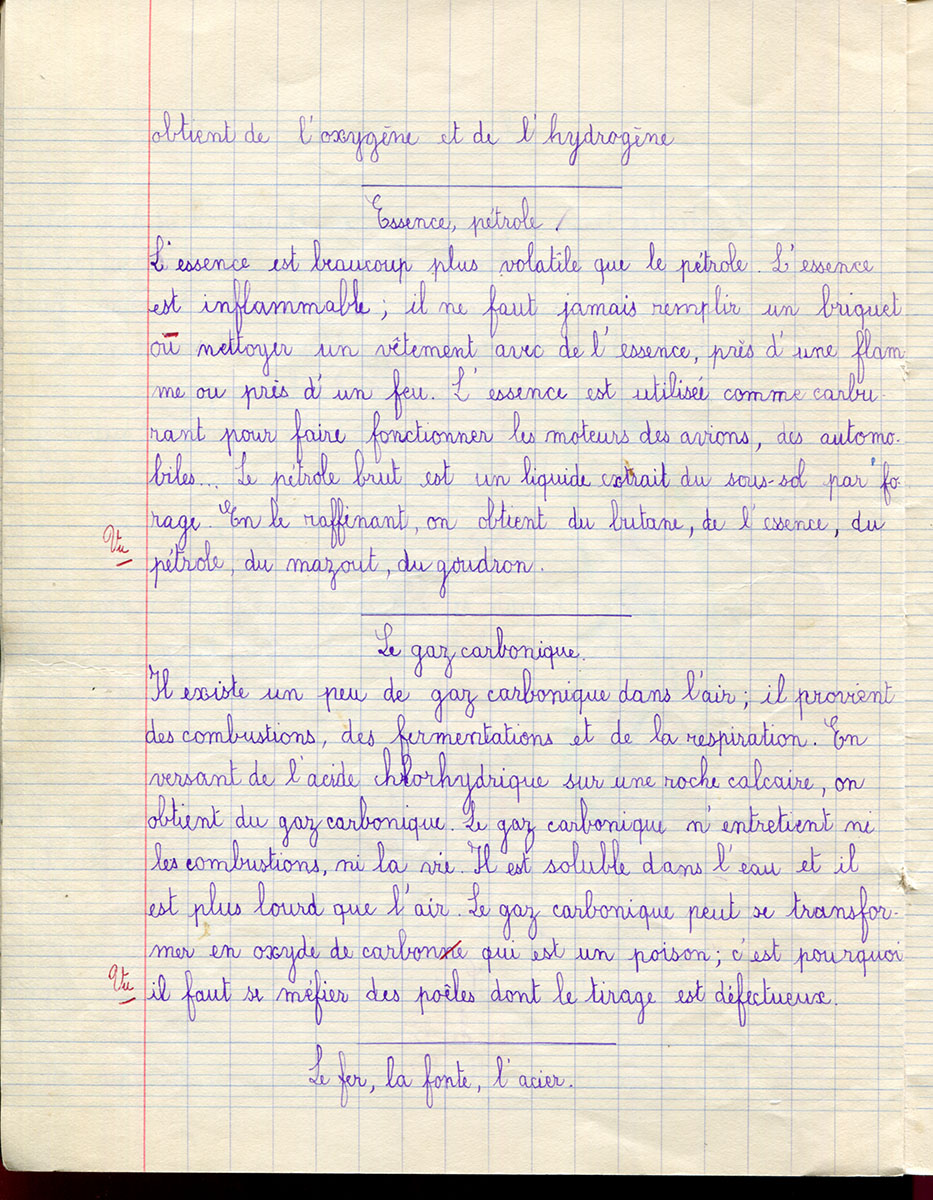 obtient de l'oxygène et de l'hydrogène
Essence, pétrole.
L'essence est beaucoup plus volatile que le pétrole. L'essence
est inflammable ; il ne faut jamais remplir un briquet
ou nettoyer un vêtement avec de l'essence, près d'une flam
me ou près d'un feu. L'essence est utilisée comme carbu-
rant pour faire fonctionner les moteurs des avions, des automo-
biles... Le pétrole brut est un liquide extrait du sous-sol par fo
rage. En le raffinant, on obtient du butane, de l'essence, du
Vu
pétrole, du mazout, du goudron.
Le gaz carbonique.
Il existe un peu de gaz carbonique dans l'air ; il provient
des combustions, des fermentations et de la respiration. En
versant de l'acide chlorhydrique sur une roche calcaire, on
obtient du gaz carbonique. Le gaz carbonique n'entretient ni
les combustions, ni la vie. Il est soluble dans l'eau et il
est plus lourd que l'air. Le gaz carbonique peut se transfor-
mer en oxyde de carbonne qui est un poison ; c'est pourquoi
Vu
il faut se méfier des poêles dont le tirage est défectueux.
Le fer, la fonte, l'acier.